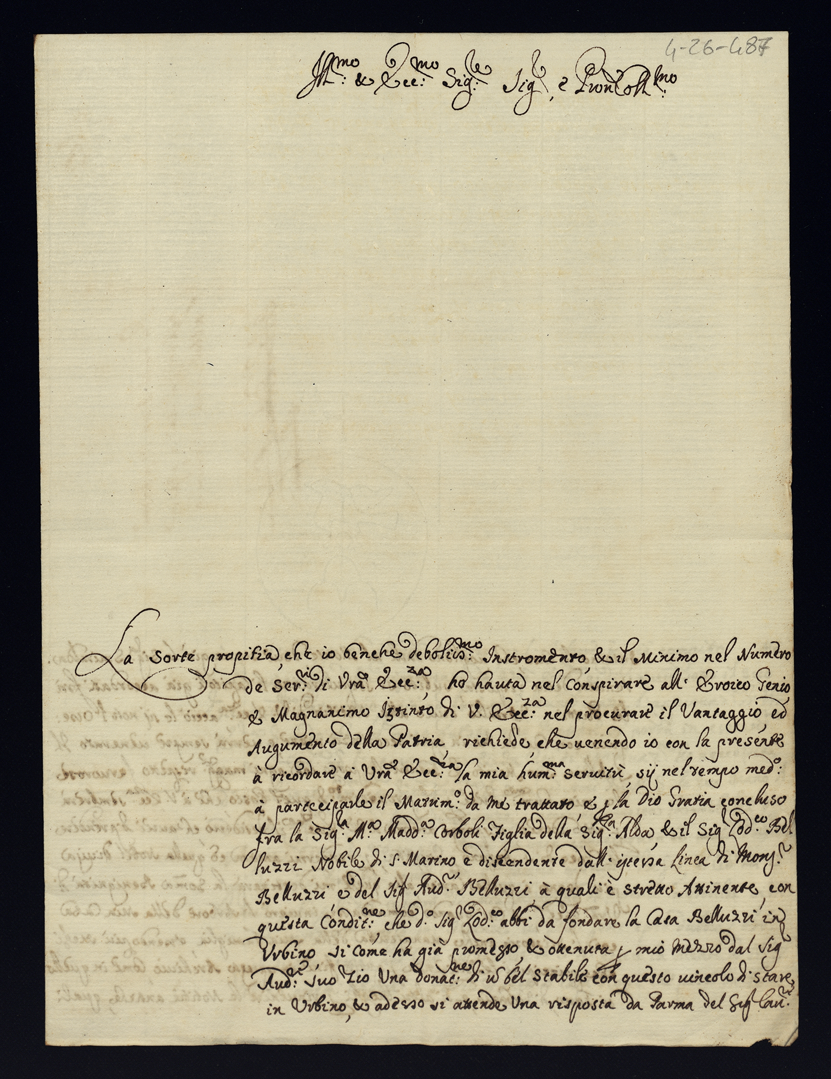 4-26-487
Ill.mo & Ecc.mo Sig.re Sig.re, e Pron Coll.mo
La sorte propitia, che io benche debolis.mo Instromento, & il Minimo nel Numero
de Ser.ri di Vra Ecc.za, ho hauta nel Conspirare all' Eroico Genio
& Magnanimo Istinto di V. Ecc.za nel procurare il Vantaggio ed
Augumento della Patria, richiede, che uenendo io con la presente
à ricordare à Vra Ecc.za la mia hum.ma seruitù sij nel tempo med.o
à partecipare il Matrim.o da me trattato & p la Dio Gratia concluso
fra la Sig.ra M.a Madd.a Corboli Figlia della Sig.ra Alda & il Sig. Lod.co Bel
luzzi Nobile di S. Marino e discendente dall' istessa Linea di Mons.r
Belluzzi e del Sig Aud.r Belluzzi à quali è stretto Attinente con
questa Condit.ne che d.o Sig Lod.co abbi da fondare la Casa Belluzzi in
Urbino si come ha già promesso & ottenuta p mio mezzo dal Sig
Aud.r suo Zio Una donat.ne di u bel stabile con questo uincolo di stare
in Urbino, & adesso si attende Una risposta da Parma del Sig Cau.re